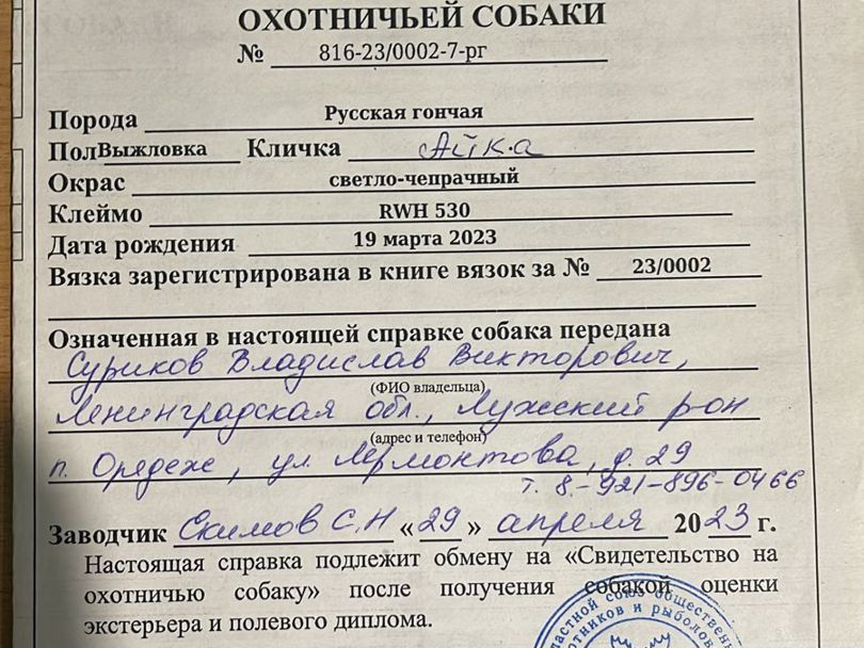 ОХОТНИЧЬЕЙ СОБАКИ
№ 816-23/0002-7-рг
Порода Русская гончая
Пол Выжловка Кличка Айка
Окрас светло-чепрачный
Клеймо RWH 530
Дата рождения 19 марта 2023
Вязка зарегистрирована в книге вязок за № 23/0002
Означенная в настоящей справке собака передана
Суриков Владислав Викторович,
(ФИО владельца)
Ленинградская обл., Лужский р-он
(адрес и телефон)
п. Оредеж, ул. Лермонтова, д. 29
т. 8-921-896-0466
Заводчик Екимов С.Н «29» апреля 2023 г.
Настоящая справка подлежит обмену на «Свидетельство на
охотничью собаку» после получения собакой оценки
экстерьера и полевого диплома.
союз обществ
и рыболов